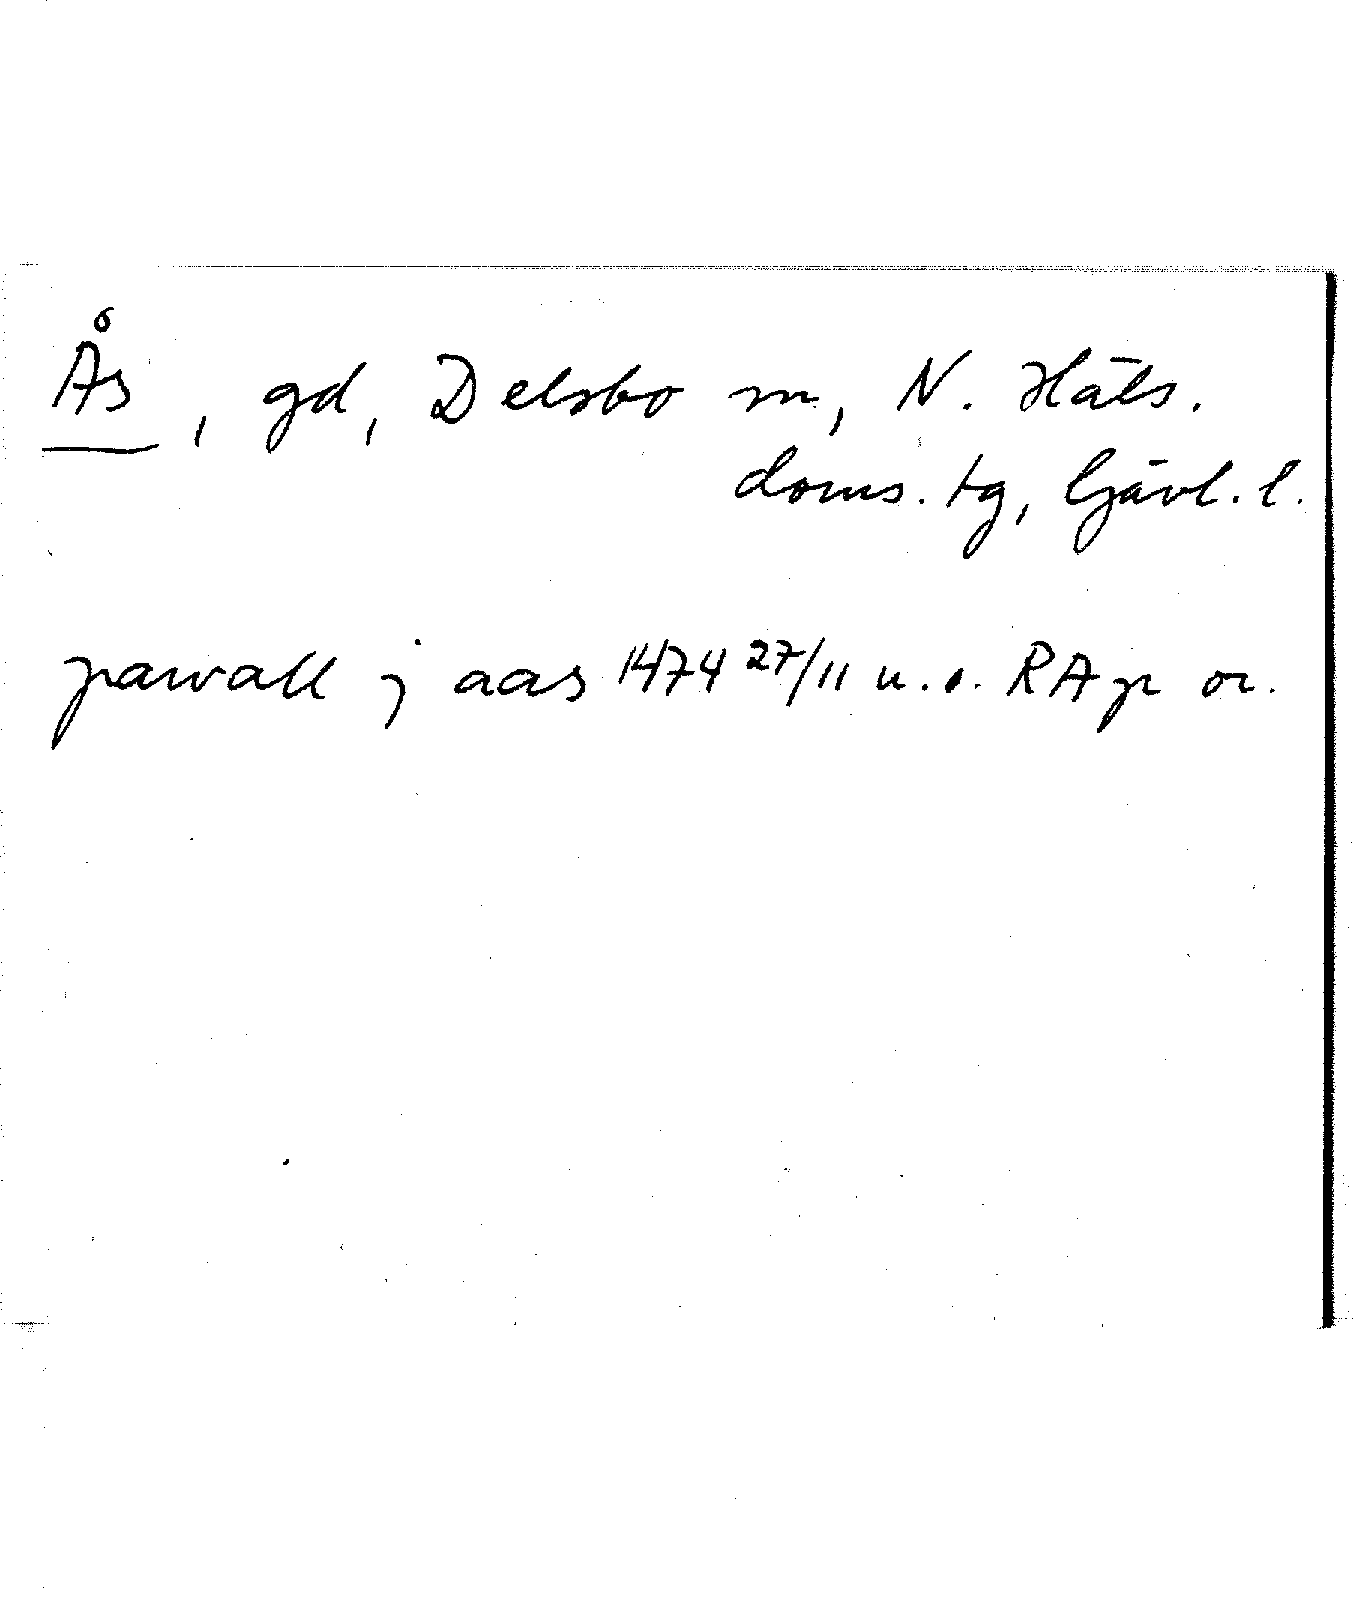 Ås, gd, Delsbo sn, N. Häls.
doms. tg, Gävl. l.
pawall j aas 1474 27/11 u.o. RAp or.